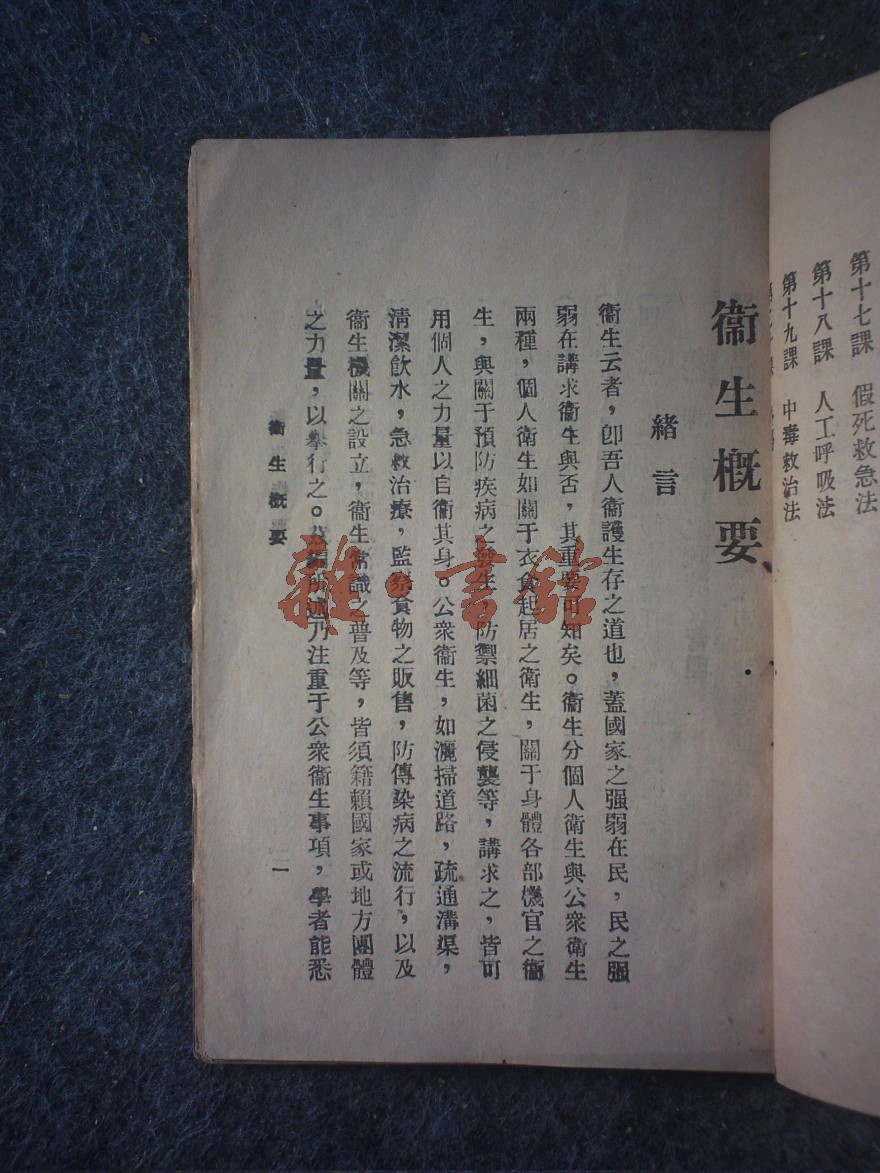 第十七課 假死救急法
第十八課 人工呼吸法
第十九課 中毒救治法
衞生概要
緒言
衞生云者，卽吾人衞護生存之道也，蓋國家之强弱在民，民之强
弱在講求衞生與否，其重要可知矣。衞生分個人衞生與公衆衞生
兩種，個人衞生如關于衣食起居之衞生，關于身體各部機官之衞
生，與關于預防疾病之發生，防禦細菌之侵襲等，講求之，皆可
用個人之力量以自衞其身。公衆衞生，如灑掃道路，疏通溝渠，
清潔飮水，急救治療，監察食物之販售，防傳染病之流行，以及
衞生機關之設立，衞生常識之普及等，皆須籍賴國家或地方團體
之力量，以舉行之。編所述乃注重于公衆衞生事項，學者能悉
衞生概要
一
雜·書館